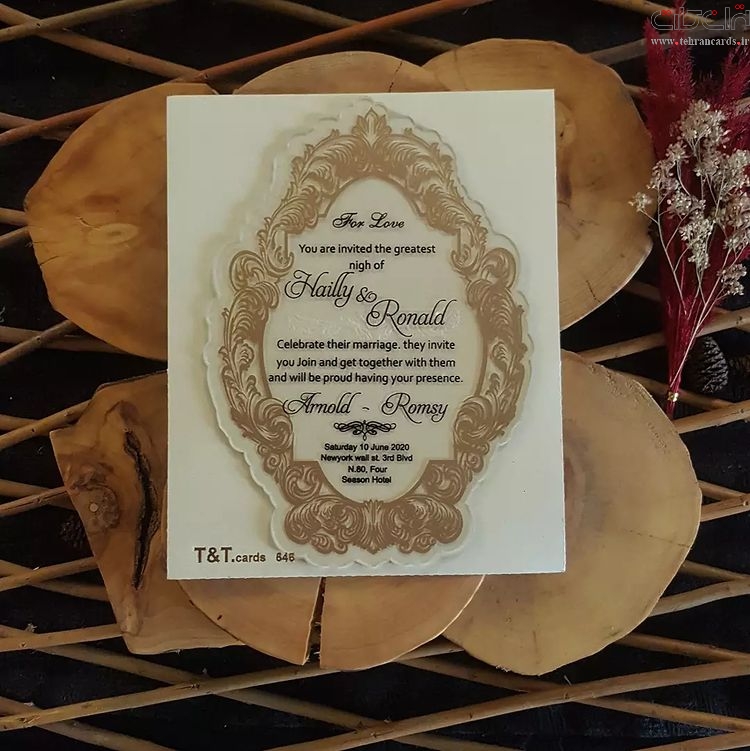 تهران کارت
www.tehrancards.ir
For Love
You are invited the greatest
nigh of
Hailly &
Ronald
Celebrate their marriage. they invite
you Join and get together with them
and will be proud having your presence.
Arnold - Romsy
Saturday 10 June 2020
Newyork wall st. 3rd Blvd
N.80, Four
Season Hotel
T&T.cards 646